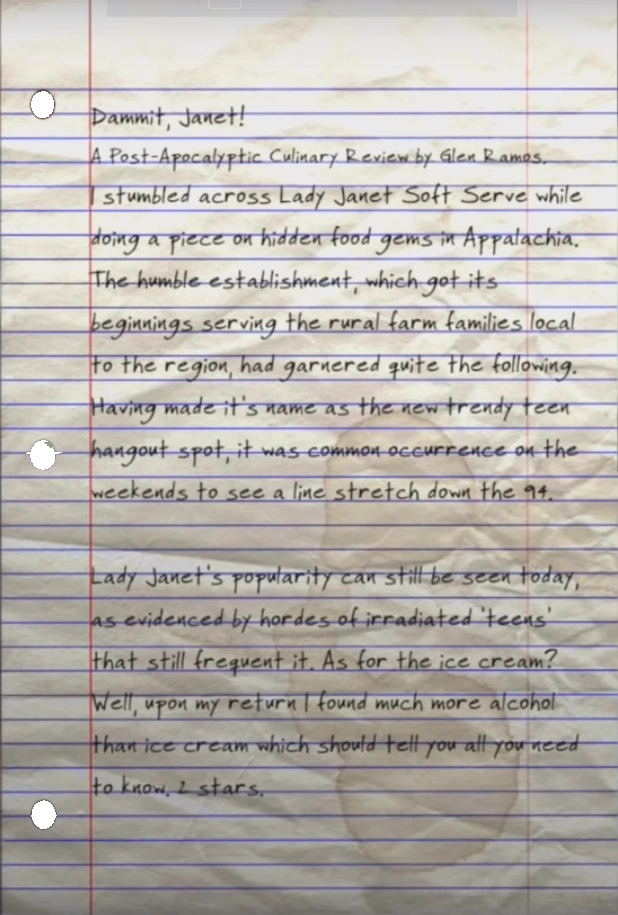 Dammit, Janet!
A Post-Apocalyptic Culinary Review by Glen Ramos.
I stumbled across Lady Janet Soft Serve while
doing a piece on hidden food gems in Appalachia.
The humble establishment, which got its
beginnings serving the rural farm families local
to the region, had garnered quite the following.
Having made it's name as the new trendy teen
hangout spot, it was common occurrence on the
weekends to see a line stretch down the 94.

Lady Janet's popularity can still be seen today,
as evidenced by hordes of irradiated 'teens'
that still frequent it. As for the ice cream?
Well, upon my return I found much more alcohol
than ice cream which should tell you all you need
to know. 2 stars.